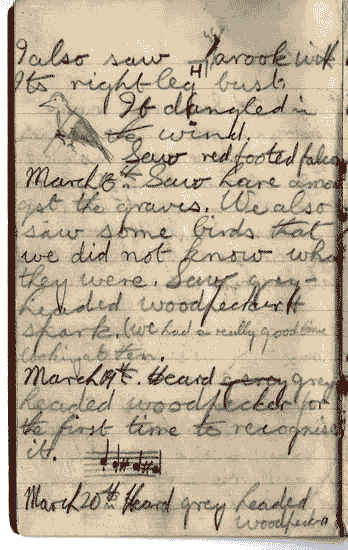 I also saw a rook with
Its right leg bust.
It dangled in
the wind.
Saw red footed falcon
March 13th Saw hare amon
gst the graves. We also
saw some birds that
we did not know what
they were. Saw grey-
headed woodpecker &
spark. We had a really good time
looking at them.
March 19th. Heard grey
headed woodpecker for
the first time to recognise
it.
March 20th Heard grey headed
woodpecker